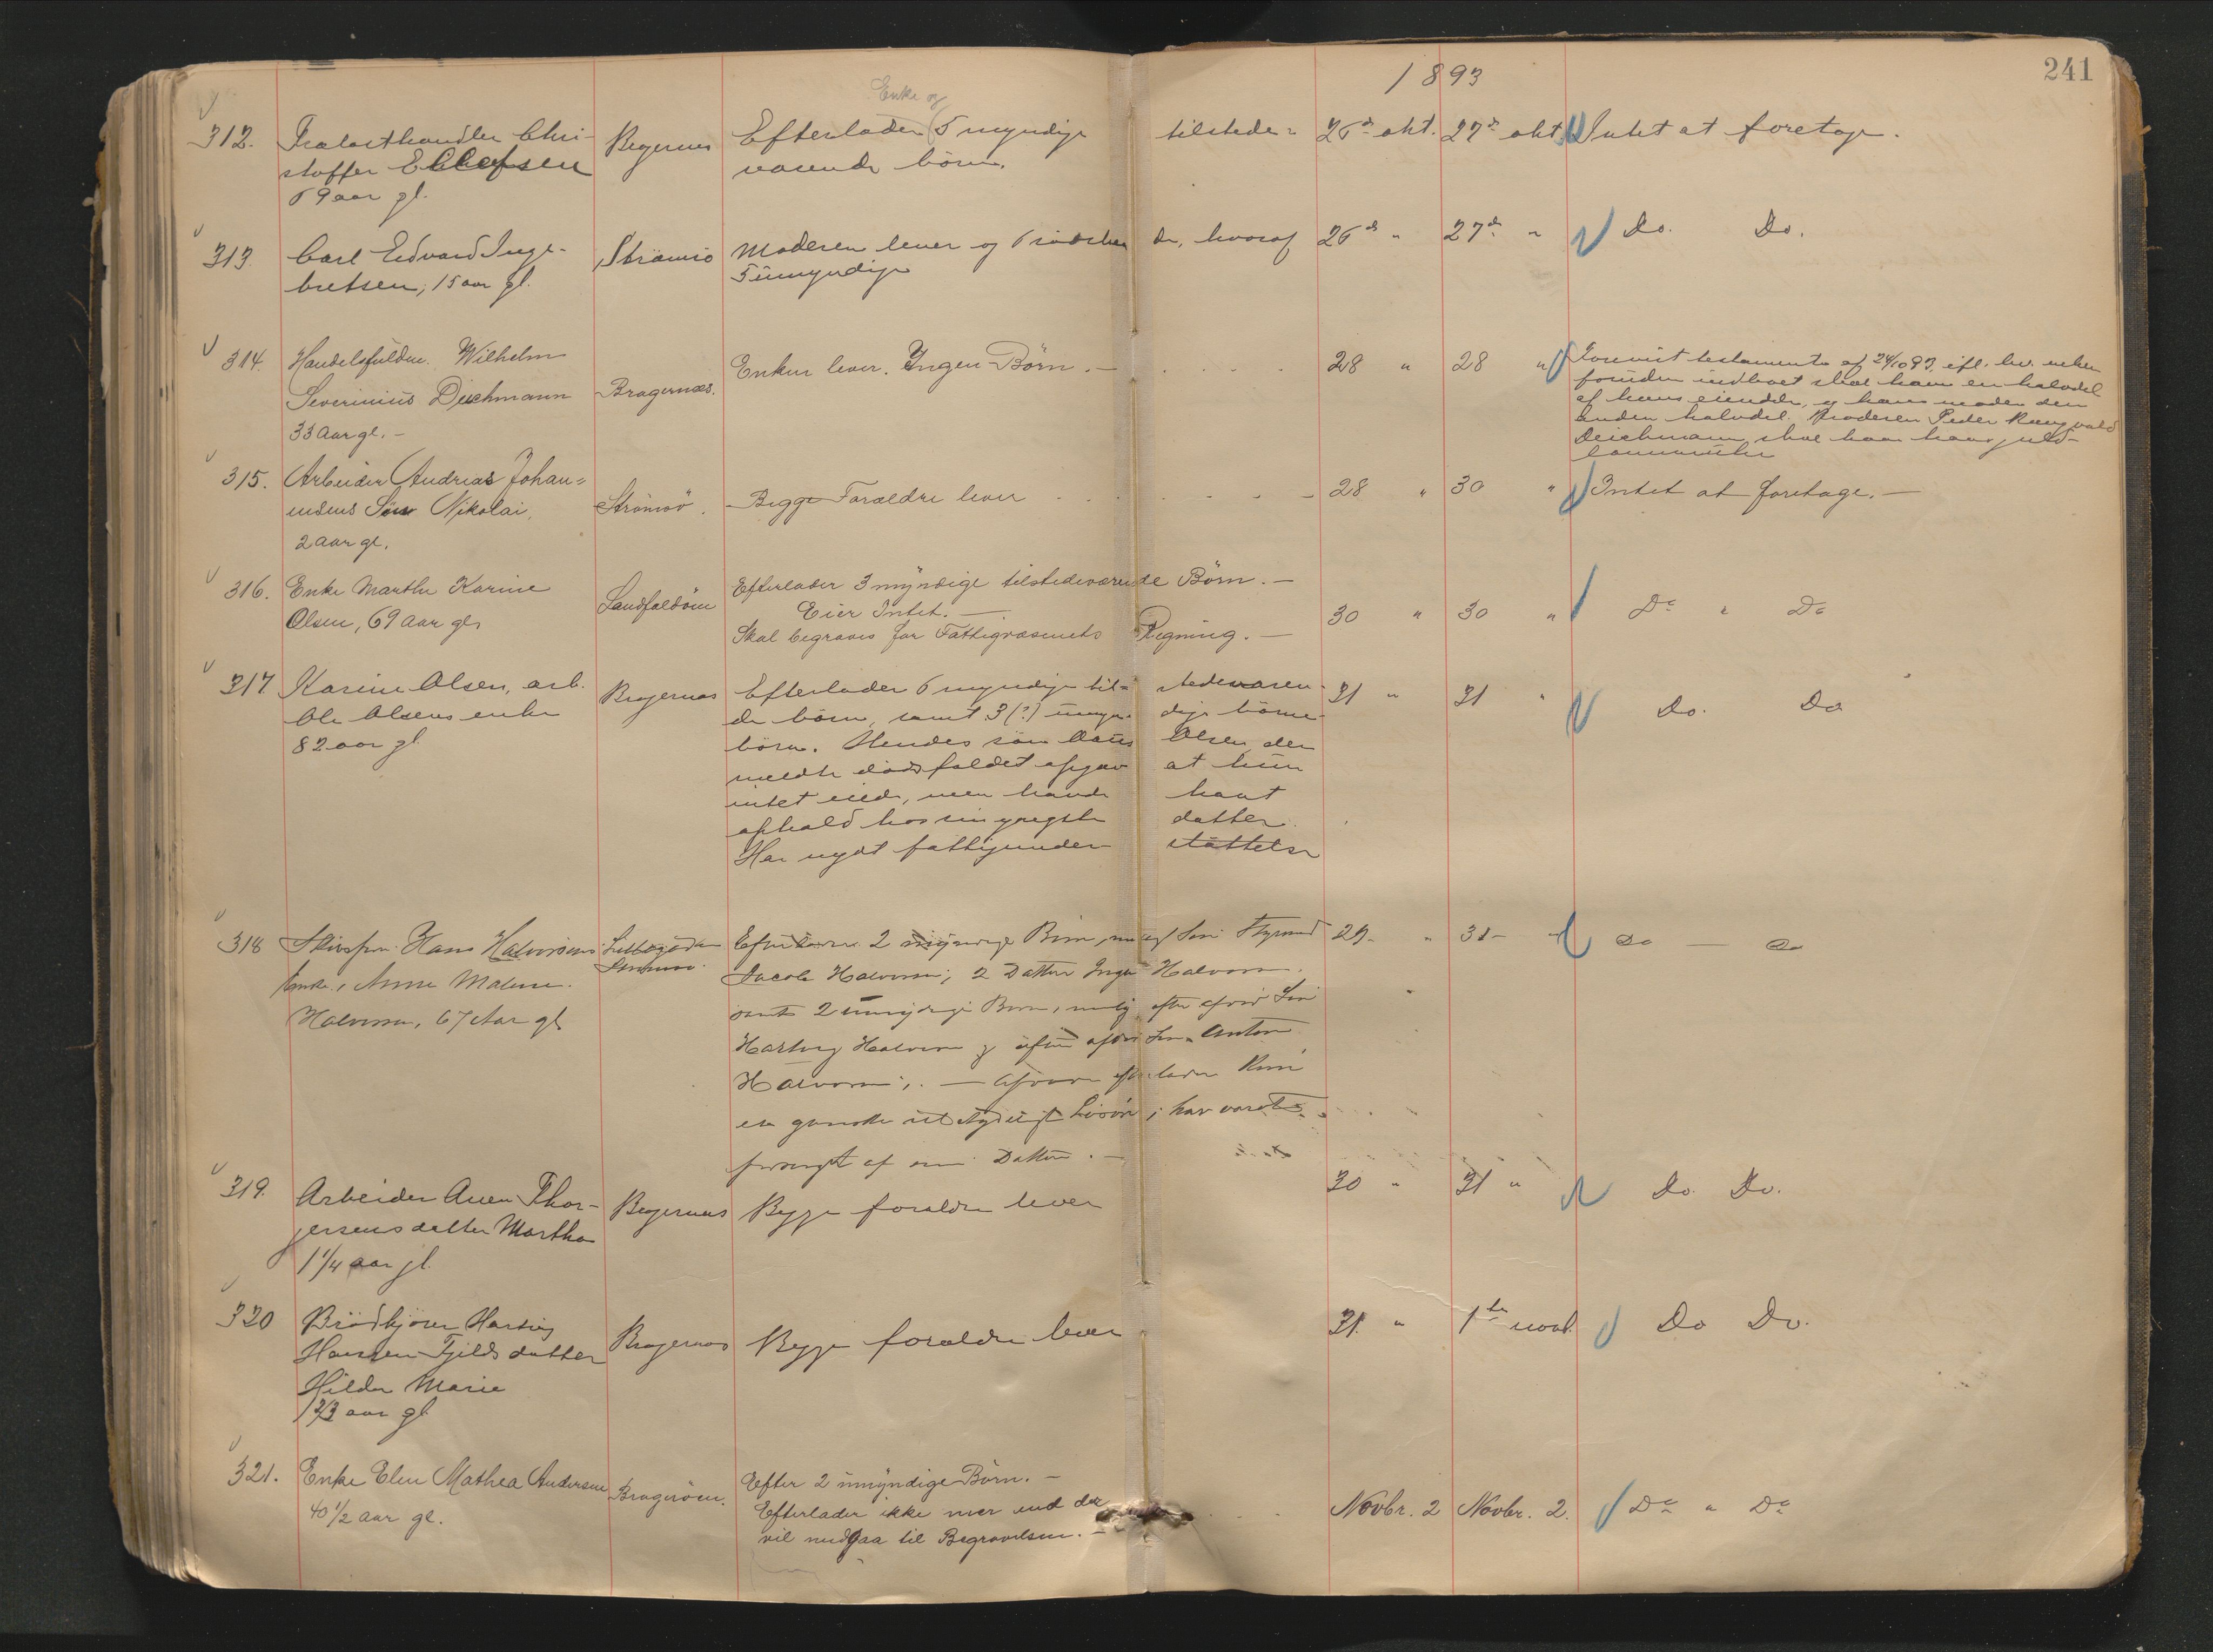 1893
241
Enke og
312. Trælasthandler Chri- Bragernes Efterlader 5 myndige tilstede= 26de okt. 27de okt. Intet at foretage.
stoffer Ellefsen værende börn.
69 aar gl.
313. Carl Edvard Inge- Strömsö Moderen lever og 6 södsken de, hvoraf 26de " 27de " Do. Do.
bretsen, 15 aar gl. 5 umyndige
314. Handelsfuldm. Wilhelm Enken lever. Ingen Börn. - 28 " 28 " Forevist testamente af 24/10 93, efl. hv. enken
Severinius Deichmann Bragernæs. foruden indboet skal have en halvdel
33 Aar gl. - af hans eiendele, og hans moder den
anden halvdel. Broderen Peder Rangvald
Deichmann skal have hans guld-
lommeuhr
315. Arbeider Andreas Johan= Strömsö. Begge Forældre lever 28 " 30 " Intet at foretage. -
nesens Sön Nikolai,
2 Aar gl.
316. Enke Marthe Karine Landfaldöen Efterlader 3 myndige tilstedeværende Börn. - 30 " 30 " Do " Do
Olsen, 69 Aar gl. Eier Intet. -
Skal begraves for Fattigvæsenets Regning. -
317 Karine Olsen, arb. Bragernes Efterlader 6 myndige til= stedeværen- 31 " 31 " Do. Do
Ole Olsens enke de börn, samt 3 (?) umyn- dige börne-
82 aar gl. börn. Hendes sön Olsen, der
meldte dödsfaldet opgav at hun
intet eiede, men havde havt
ophold hos sin yngste datter.
Har nydt fattigunder- stöttelse
318 Hans Halvorsens Efterlader 2 myndige Börn, Sön Styrmand 29 " 31 - " do - do
Enke, Anne Malene Jacob Halvorsen; 2 Datter Halvorsen
Halvorsen, 67 Aar gl. samt 2 umyndige Börn, efter Sön
Hartvig Halvorsen og Sön Anton
Halvorsen; - efterlader kun
en ganske ubetydeligt Lösöre; har været
forsörget af sin Datter. -
319. Arbeider Aren Thor- Bragernes Begge forældre lever 30 " 31 " Do. Do.
gersens datter Martha
1 1/4 aar gl.
320 Brödkjörer Hartvig Bragernes Begge forældre lever 31. " 1ste novb. Do Do.
Hansen Fjelds datter
Hilda Marie
1 2/3 aar gl
321. Enke Elen Mathea Andersen Brageröen. Efter 2 umyndige Börn. - Novbr. 2 Novbr. 2. Do " Do
40 1/2 Aar gl. Efterlader ikke mer end der
vil medgaa til Begravelsen. -